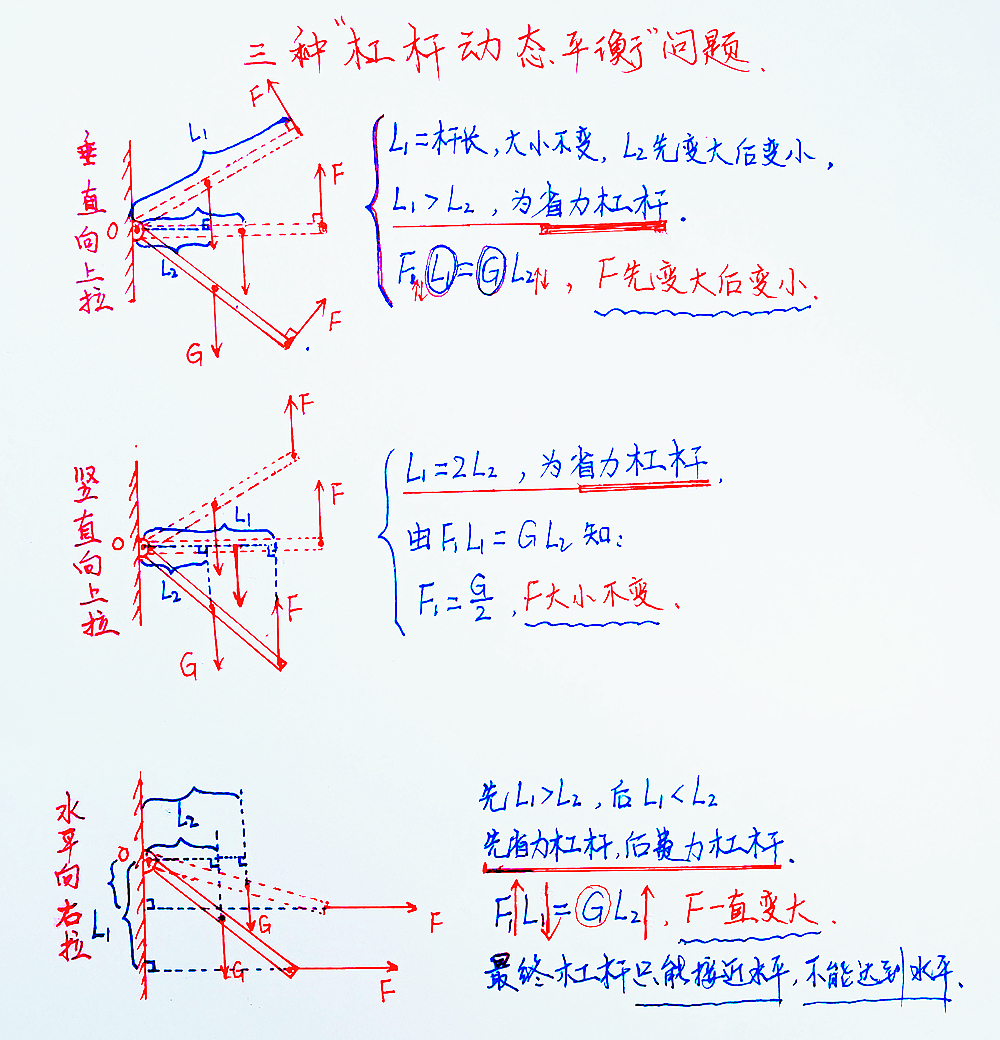 三种"杠杆动态平衡"问题.
垂直向上拉
F
L₁
F
O
L₂
F
G
L₁=杆长,大小不变,L₂先变大后变小,
L₁>L₂,为省力杠杆.
F₁↑↓L₁=GL₂↑↓,F先变大后变小.
竖直向上拉
F
F
L₁
O
L₂
F
G
L₁=2L₂,为省力杠杆.
由F₁L₁=GL₂知:
F₁=G/2,F大小不变.
水平向右拉
L₂
O
L₁
G
F
G
F
先L₁>L₂,后L₁<L₂
先省力杠杆,后费力杠杆.
F₁↑L₁↓=GL₂↑,F一直变大.
最终杠杆只能接近水平,不能达到水平.